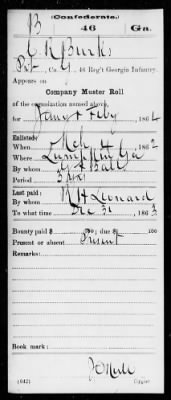 (Confederate.)
B 46 Ga.
C R Burks
Pvt, Co. G, 46 Reg't Georgia Infantry.
Appears on
Company Muster Roll
of the organization named above,
for Jany & Feby, 1864
Enlisted:
When Mch 4, 1862
Where Lumpkin Ga
By whom Ball
Period 3 yrs
Last paid:
By whom W H Leonard
To what time Dec 31, 1863
Bounty paid $ 100; due $ 100
Present or absent Present
Remarks:
Book mark:
(642) Copyist.